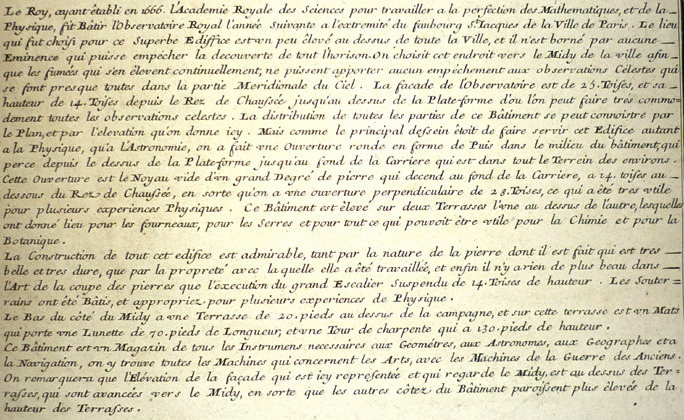 Le Roy, ayant êtabli en 1666. l'Academie Royale des Sciences pour travailler a la perfection des Mathematiques, et de la
Physique, fit Bâtir l'Observatoire Royal l'année Suivante a l'extremité du faubourg St. Jacques de la Ville de Paris. Le lieu
qui fut choisi pour ce Superbe Ediffice est vn peu êlevé au dessus de toute la Ville, et il n'est borné par aucune
Eminence qui puisse empêcher la decouverte de tout l'horison. On choisit cet endroit vers le Midy de la ville afin
que les fumées qui s'en êlevent continuellement, ne puissent apporter aucun empêchement aux observations Celestes qui
se font presque toutes dans la partie Meridionale du Ciel. La facade de l'Observatoire est de 25. Toises, et sa
hauteur de 14. Toises depuis le Rez de Chaussée jusqu'au dessus de la Plate-forme d'ou l'on peut faire tres commo=
dement toutes les observations celestes. La distribution de toutes les parties de ce Bâtiment se peut connoistre par
le Plan, et par l'elevation qu'on donne icy. Mais comme le principal dessein êtoit de faire servir cet Edifice autant
a la Physique, qu'a l'Astronomie, on a fait vne Ouverture ronde en forme de Puis dans le milieu du bâtiment, qui
perce depuis le dessus de la Plate-forme jusqu'au fond de la Carriere qui est dans tout le Terrein des environs.
Cette Ouverture est le Noyau vide d'vn grand Degré de pierre qui decend au fond de la Carriere, a 14. toises au
dessous du Rez de Chaussée, en sorte qu'on a vne ouverture perpendiculaire de 28. Toises, ce qui a êté tres vtile
pour plusieurs experiences Physiques. Ce Bâtiment est êlevé sur deux Terrasses l'vne au dessus de l'autre, lesquelles
ont donné lieu pour les fourneaux, pour les Serres et pour tout ce qui pouvoit être vtile pour la Chimie et pour la
Botanique.
La Construction de tout cet edifice est admirable, tant par la nature de la pierre dont il est fait qui est tres
belle et tres dure, que par la propreté avec la quelle elle a êté travaillée, et enfin il n'y a rien de plus beau dans
l'Art de la coupe des pierres que l'execution du grand Escalier Suspendu de 14. Toises de hauteur. Les Souter=
rains ont êté Bâtis, et appropriez pour plusieurs experiences de Physique.
Le Bas du côté du Midy a vne Terrasse de 20. pieds au dessus de la campagne, et sur cette terrasse est vn Mats
qui porte vne Lunette de 70. pieds de Longueur, et vne Tour de charpente qui a 130. pieds de hauteur.
Ce Bâtiment est vn Magazin de tous les Instrumens necessaires aux Geométres, aux Astronomes, aux Geographes et a
la Navigation, on y trouve toutes les Machines qui concernent les Arts, avec les Machines de la Guerre des Anciens.
On remarquera que l'Elévation de la façade qui est icy representée et qui regarde le Midy, est au dessus des Ter=
rasses, qui sont avancées vers le Midy, en sorte que les autres côtez du Bâtiment paroissent plus êlevés de la
hauteur des Terrasses.